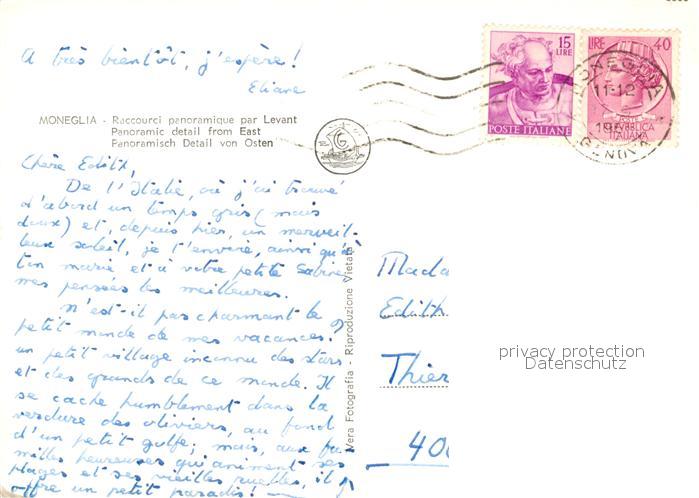 A très bientôt, j'espère!
Eliane
MONEGLIA - Raccourci panoramique par Levant
Panoramic detail from East
Panoramisch Detail von Osten
Chère Edith,
De l'Italie, où j'ai trouvé
d'abord un temps gris (mais
doux) et, depuis hier, un merveil-
leux soleil, je t'envoie, ainsi qu'à
ton mari et à votre petite Sabine,
mes pensées les meilleures.
N'est-il pas charmant le
petit monde de mes vacances?
un petit village inconnu des stars
et des grands de ce monde. Il
se cache humblement dans la
verdure des oliviers, au fond
d'un petit golfe; mais, aux fa-
milles heureuses qui animent ses
plages et ses vieilles ruelles, il
offre un petit paradis!
Vera Fotografia - Riproduzione Vietata
15
LIRE
POSTE ITALIANE
LIRE 40
POSTE
REPUBBLICA
ITALIANA
MONEGLIA
11-12
GENOVA
Mada
Edith
Thier
40
privacy protection
Datenschutz